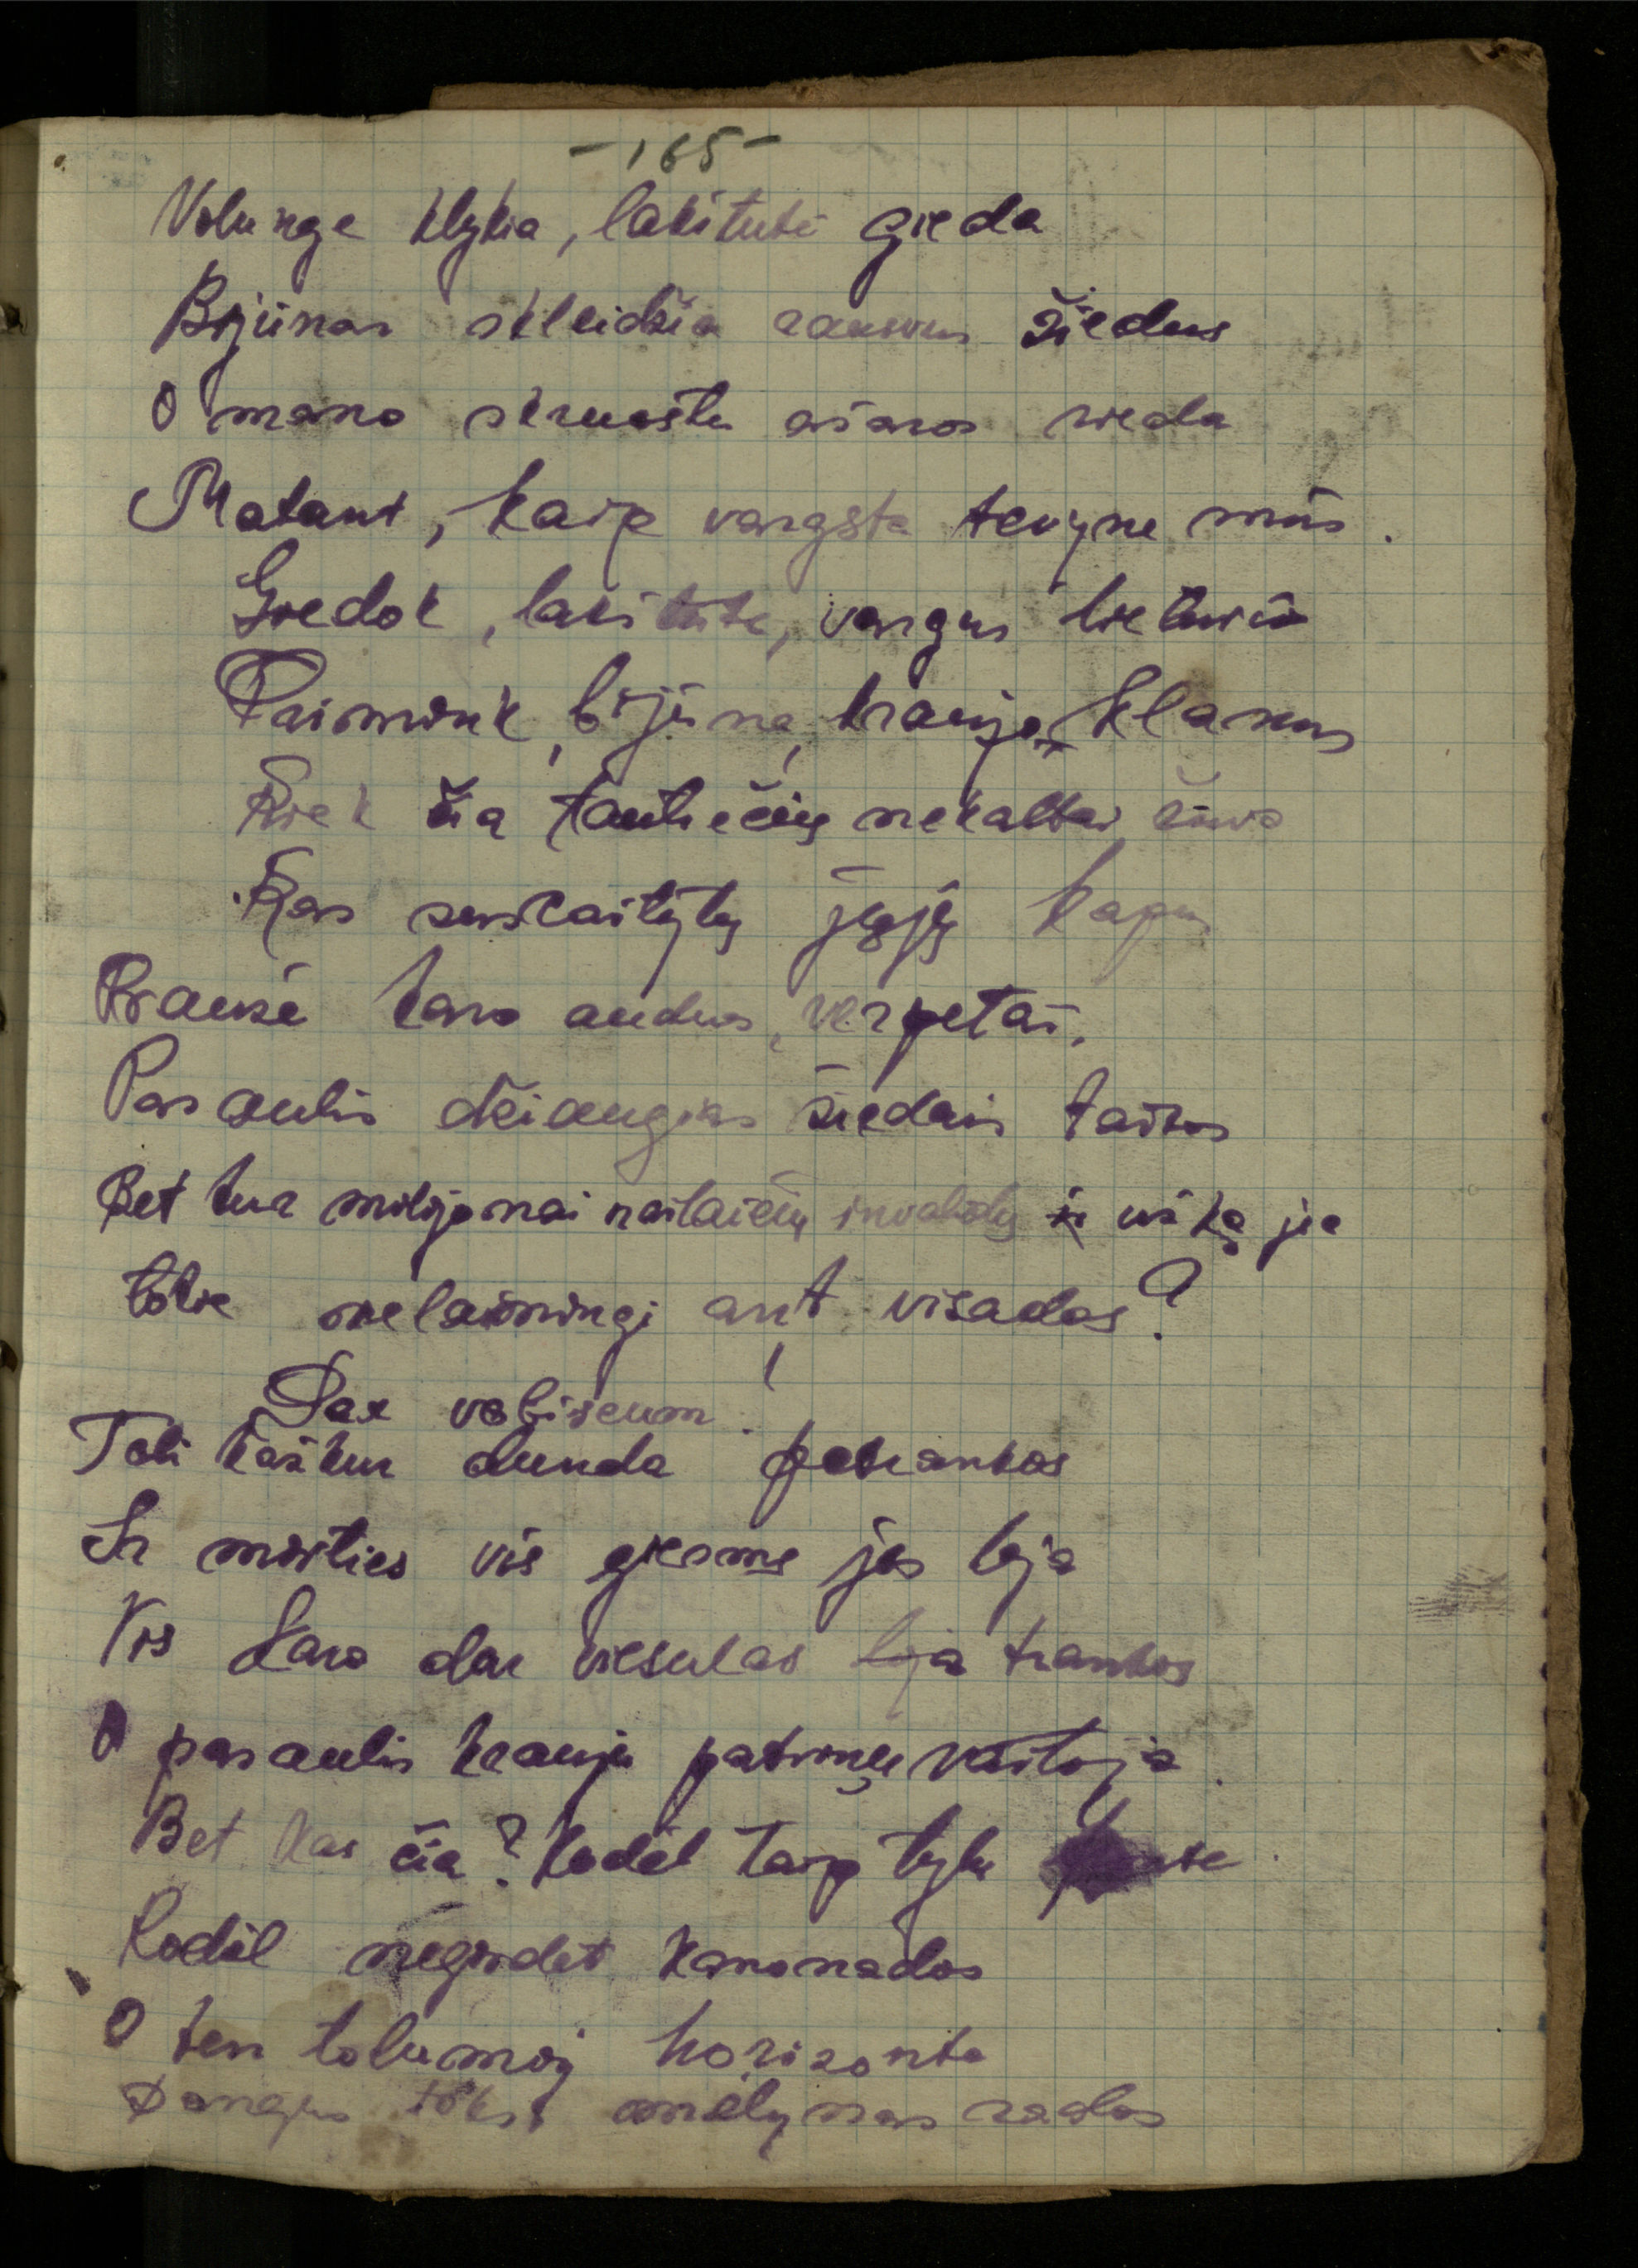 -165-
Volunge klykia, lakštutė gieda
Bijūnas skleidžia rausvus žiedus
O mano skruostu ašaros rieda
Matant, kaip vargsta tevynė mūs.
Giedok, lakštute, vargus lietuvio
Paimink, bijūne, kraujo klanus
Kiek čia tautiečių nekaltai žuvo
Kas suskaitytų jųjų kapus
Praūžė karo audros, verpetai,
Pasaulis džiaugias žiedais taikos
Bet kur milijonai našlaičių invalidų už ką jie
tokie nelaimingi ant visados?
Pax vobiscum!
Toli kažkur dunda patrankos
Ir mirties vis giesmę jos loja
Vis karo dar viesulas trankos
O pasaulis krauju patvinęs vaitoja.
Bet kas čia? Kodėl taip tylu
Kodėl negirdet kanonados
O ten tolumoj horizonte
Dangus toks mėlynas rados